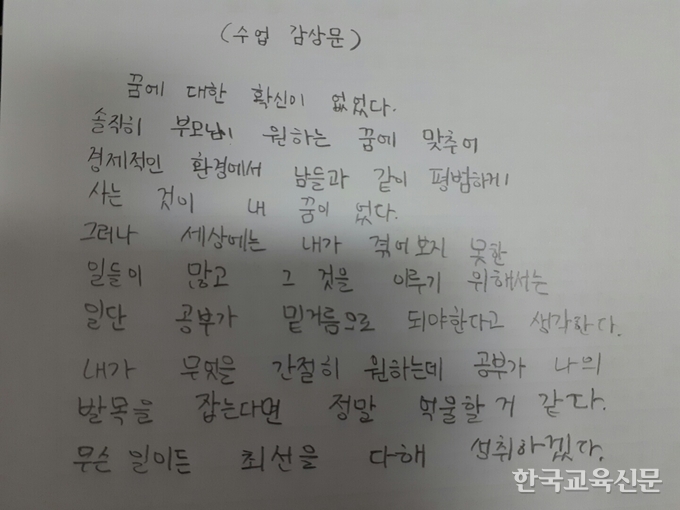 (수업 감상문)
꿈에 대한 확신이 없었다.
솔직히 부모님이 원하는 꿈에 맞추어
경제적인 환경에서 남들과 같이 평범하게
사는 것이 내 꿈이 었다.
그러나 세상에는 내가 겪어보지 못한
일들이 많고 그 것을 이루기 위해서는
일단 공부가 밑거름으로 되야한다고 생각한다.
내가 무엇을 간절히 원하는데 공부가 나의
발목을 잡는다면 정말 억울할 거 같다.
무슨 일이든 최선을 다해 섭취하겠다.
한국교육신문